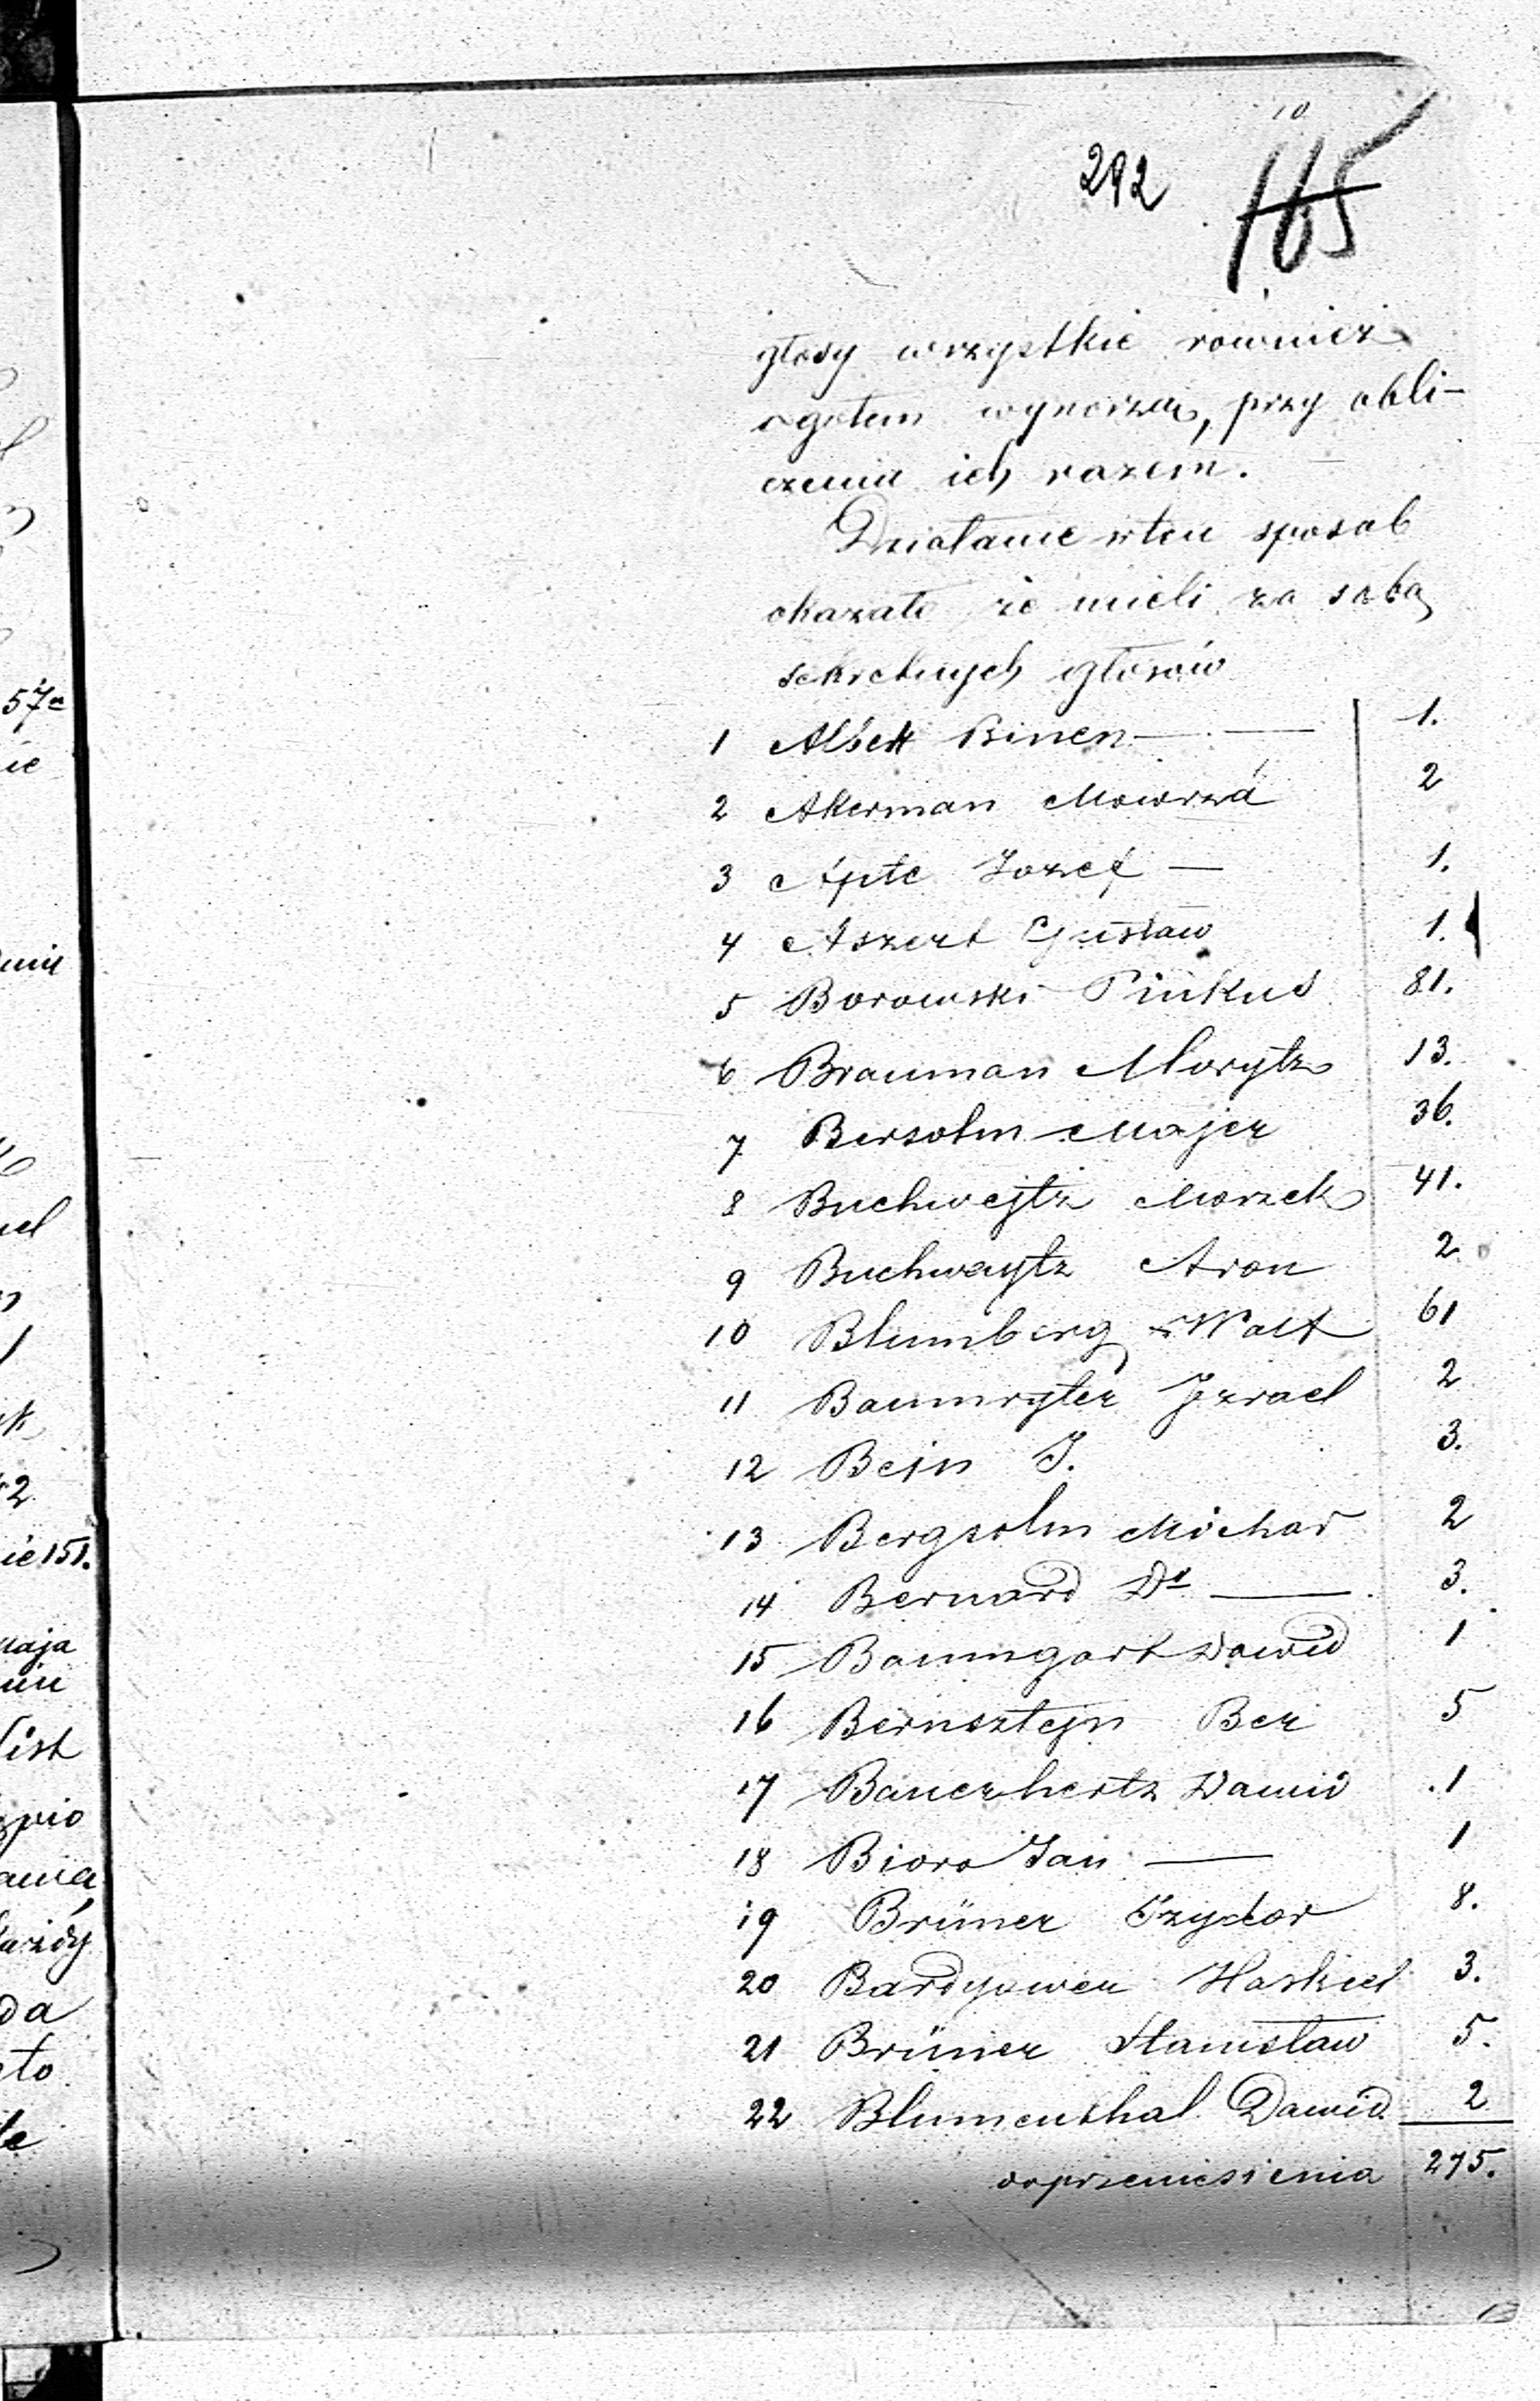 10
292 165
głosy wszystkie również
ogółem wynoszą, przy obli-
czeniu ich razem.
Działanie w ten sposób
okazało że mieli za sobą
sekretnych głosów
1 Albert Binen — 1.
2 Akerman 2
3 Apte Jozef — 1.
4 Aszert Gustaw 1.
5 Borowski Pinkus 81.
6 Brauman Morytz 13.
7 Bersohn Majer 36.
8 Buchwejtz Moszek 41.
9 Buchwaytz Aron 2
10 Blumberg Wolf 61
11 Baumryter Jzrael 2
12 Bejn J. 3.
13 Bergsohn Michał 2
14 Bernard Dr — 3.
15 Baumgart Dawid 1
16 Bernsztejn Ber 5
17 Bauerhertz Dawid 1
18 Bioro Jan — 1
19 Brüner Izydor 8.
20 Haskiel 3.
21 Brüner Stanisław 5.
22 Blumenthal Dawid 2
do przeniesienia 275.
57
ie
uel
42
ie 151.
Maja
list
da
to